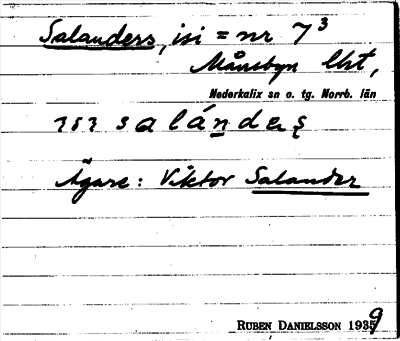 Salanders, isi = nr 7³
Månsbyn
Nederkalix sn o. tg. Norrb. län
salándeʂ
Ägare: Viktor Salander
RUBEN DANIELSSON 1939